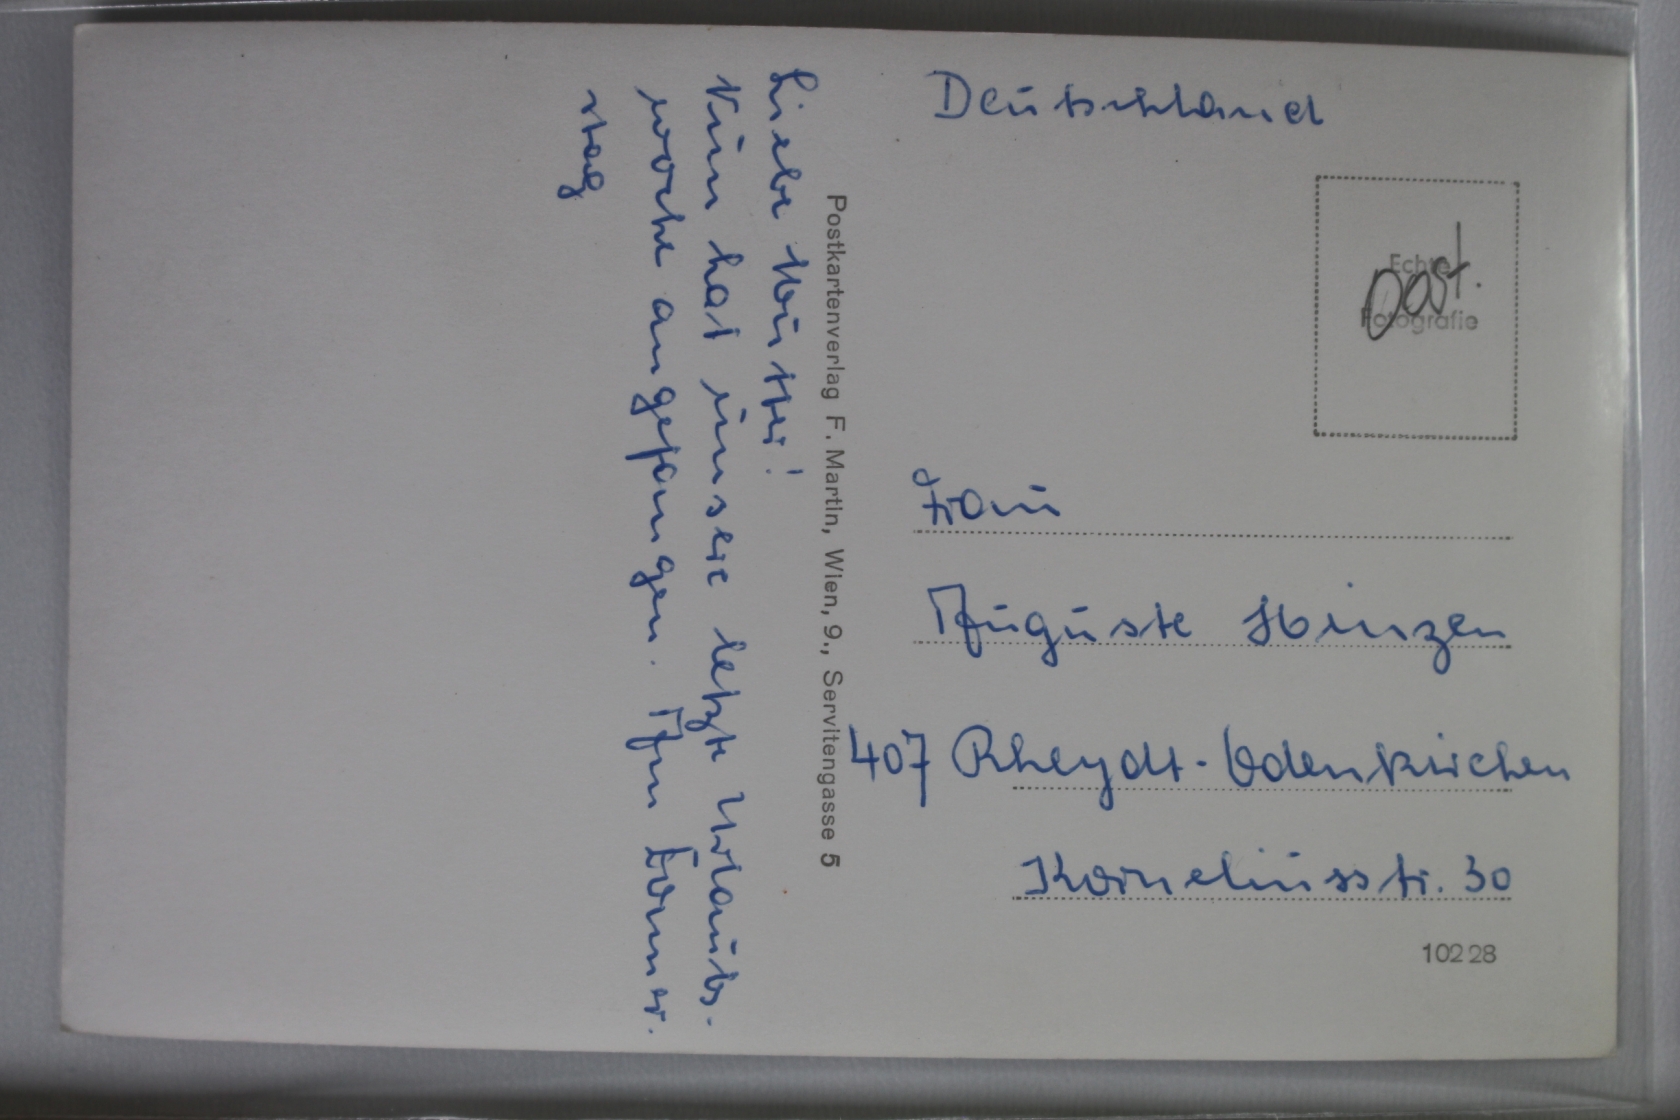 Liebe Mutter!
Nun hat unsere letzte Urlaubs-
woche angefangen. Am Donner-
stag
Postkartenverlag F. Martin, Wien, 9., Servitengasse 5
Deutschland
Echte
Fotografie
Frau
Auguste Hinzen
407 Rheydt-Odenkirchen
Korneliusstr. 30
10228